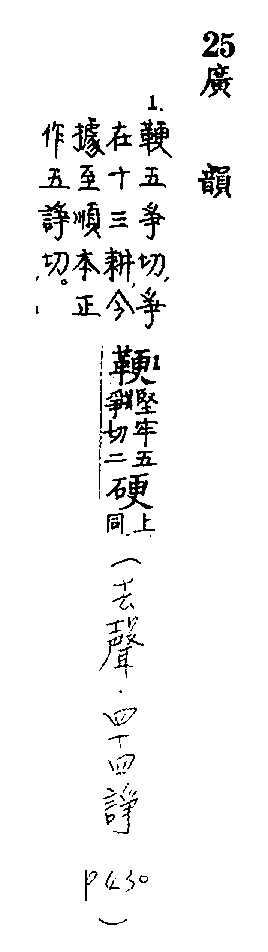 25
廣韻
1.
鞕五爭切,爭
在十三耕,今
據至順本正
作五諍切。
鞕1堅牢五
爭切二硬上
同
(去聲.四十四諍
P430)